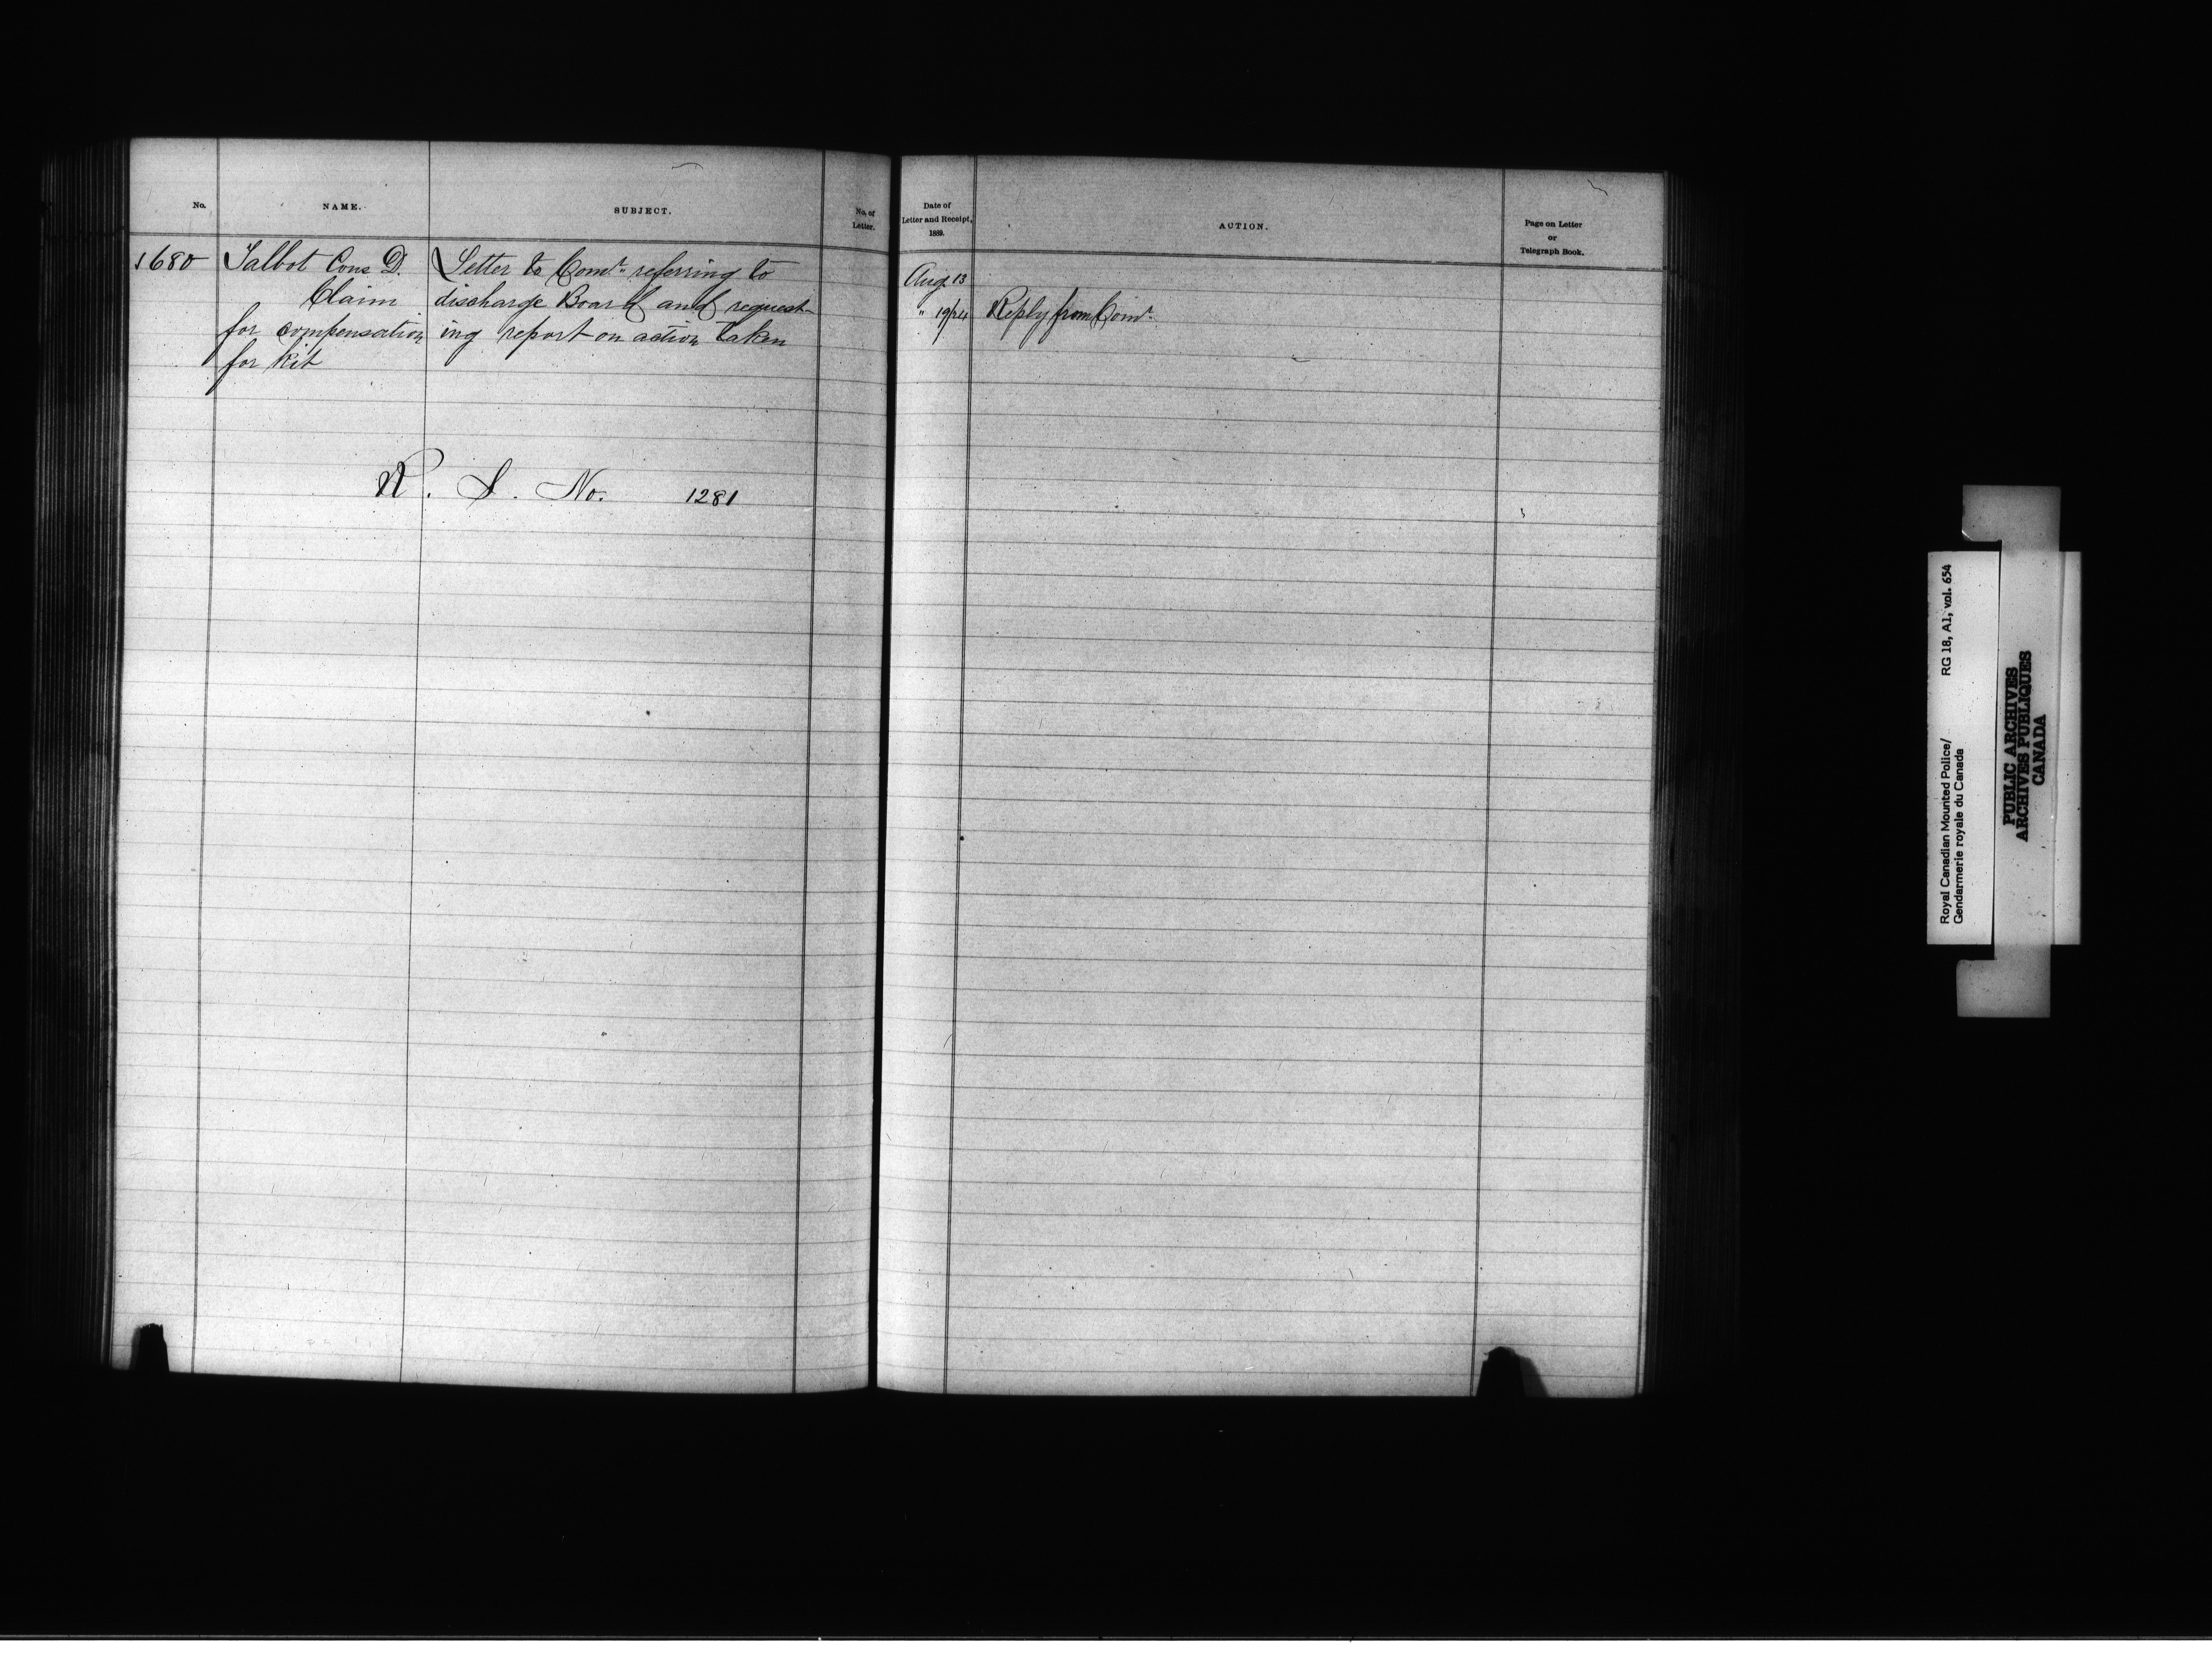 No.
NAME.
SUBJECT.
No. of
Letter.
Date of
Letter and Receipt,
1889.
ACTION.
Page on Letter
or
Telegraph Book.
1680
Talbot Cons D.
Claim
for compensation
for kit
Letter to Comr. referring to
discharge Board and request-
ing report on action taken
Aug 13
" 19/24 Reply from Comr.
No. 1281
Royal Canadian Mounted Police/
Gendarmerie royale du Canada
RG 18, A1, vol. 654
PUBLIC ARCHIVES
ARCHIVES PUBLIQUES
CANADA